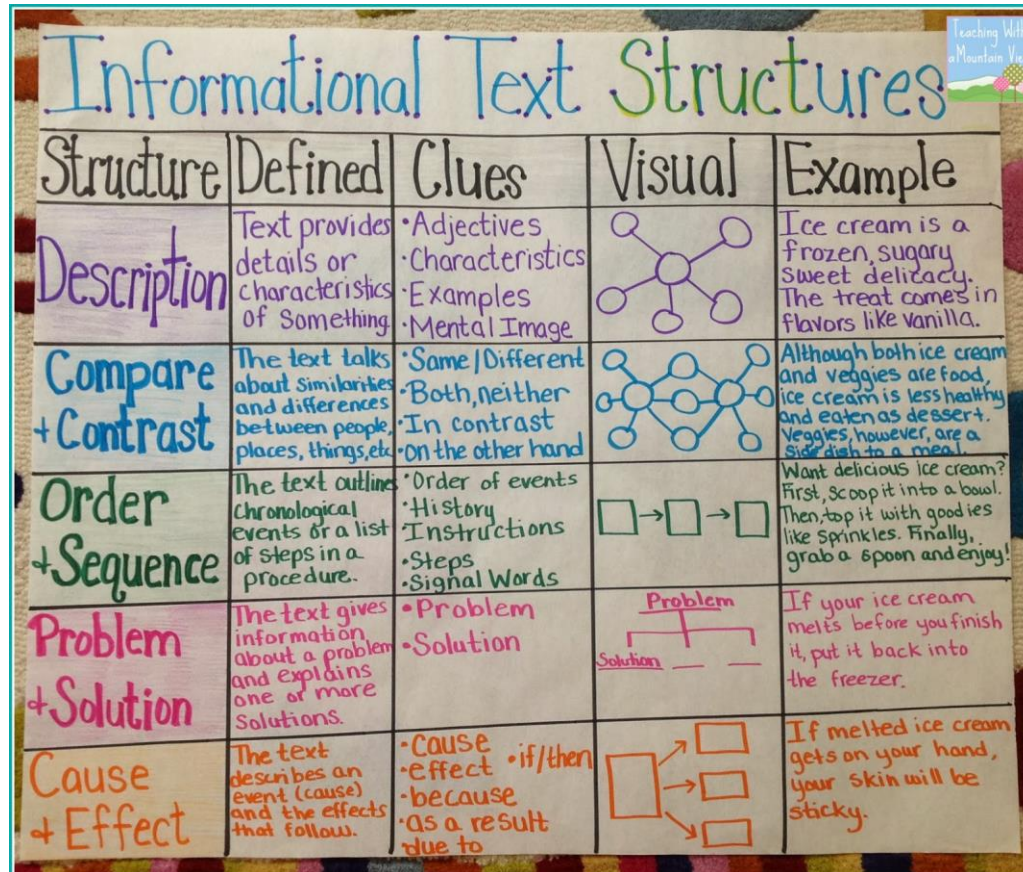 Teaching With
a Mountain View
Informational Text Structures
Structure
Defined
Clues
Visual
Example
Description
Text provides
details or
characteristics
of Something
•Adjectives
•Characteristics
•Examples
•Mental Image
Ice cream is a
frozen, sugary
sweet delicacy.
The treat comes in
flavors like vanilla.
Compare
+ Contrast
The text talks
about similarities
and differences
between people,
places, things, etc.
•Same/Different
•Both, neither
•In contrast
•on the other hand
Although both ice cream
and veggies are food,
ice cream is less healthy
and eaten as dessert.
Veggies, however, are a
side dish to a meal.
Order
+ Sequence
The text outlines
chronological
events or a list
of steps in a
procedure.
•Order of events
•History
•Instructions
•Steps
•Signal Words
Want delicious ice cream?
First, scoop it into a bowl.
Then, top it with goodies
like sprinkles. Finally,
grab a spoon and enjoy!
Problem
+ Solution
The text gives
information
about a problem
and explains
one or more
Solutions.
•Problem
•Solution
Problem
Solution
If your ice cream
melts before you finish
it, put it back into
the freezer.
Cause
+ Effect
The text
describes an
event (cause)
and the effects
that follow.
•cause
•effect •if/then
•because
•as a result
due to
If melted ice cream
gets on your hand,
your skin will be
sticky.